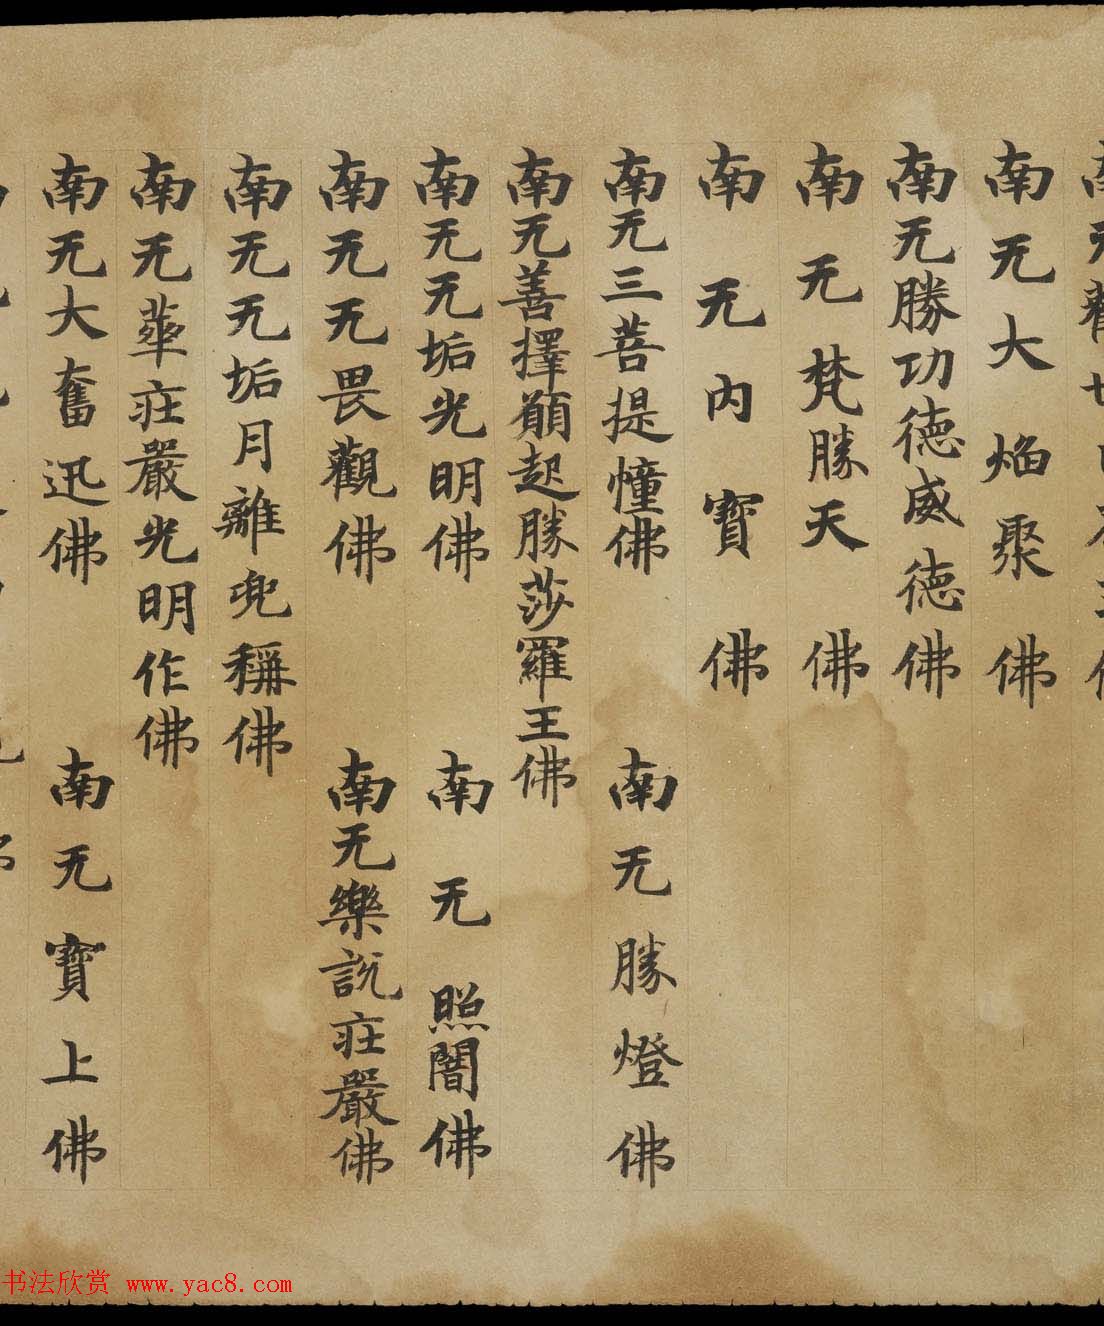 南无大焰聚佛
南无勝功德威德佛
南无梵勝天佛
南无内寶佛
南无三菩提幢佛 南无勝燈佛
南无善擇願起勝莎羅王佛
南无无垢光明佛 南无照闇佛
南无无畏觀佛 南无樂說莊嚴佛
南无无垢月離兜稱佛
南无華莊嚴光明作佛
南无大奮迅佛 南无寶上佛
书法欣赏 www.yac8.com